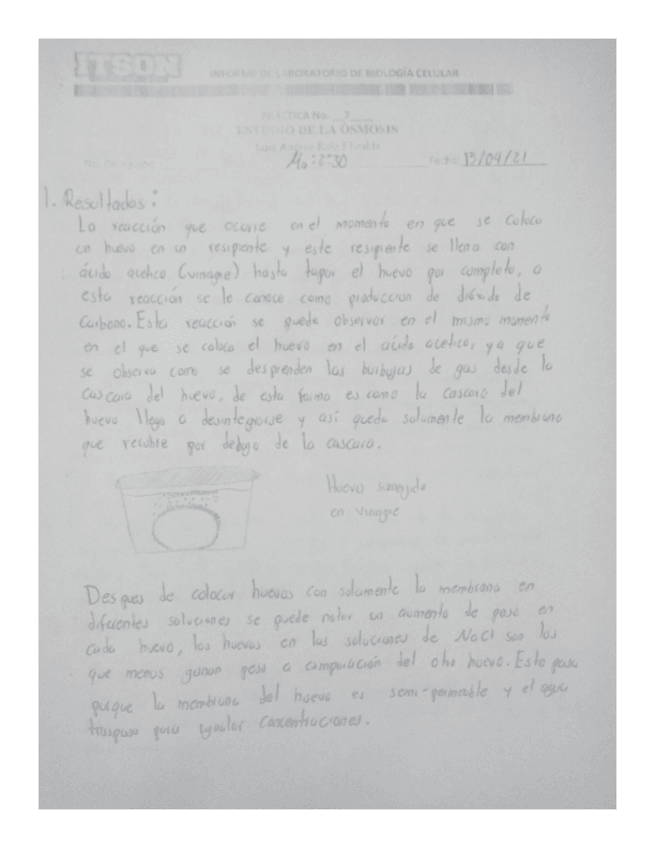 ITSON
INFORME DE LABORATORIO DE BIOLOGÍA CELULAR
PRÁCTICA No. 7
ESTUDIO DE LA ÓSMOSIS
Fecha: 13/04/21
1. Resultados:
La reacción que ocurre en el momento en que se coloca
un huevo en un resipiente y este resipiente se llena con
ácido acetico (vinagre) hasta tapar el huevo por completo, a
esta reacción se le conoce como produccion de dióxido de
Carbono. Esta reacción se puede observar en el mismo momento
en el que se coloca el huevo en el acido acetico, ya que
se observa como se desprenden las burbujas de gas desde la
cascara del huevo, de esta forma es como la cascara del
huevo llega a desintegrarse y así queda solamente la membrana
que recubre por debajo de la cascara.
Huevo sumergido
en vinagre
Despues de colocar huevos con solamente la membrana en
diferentes soluciones se puede notar un aumento de peso en
cada huevo, los huevos en las soluciones de NaCl son los
que menos ganan peso a comparación del otro huevo. Esto pasa
porque la membrana del huevo es semi-permeable y el agua
traspasa para igualar concentraciones.